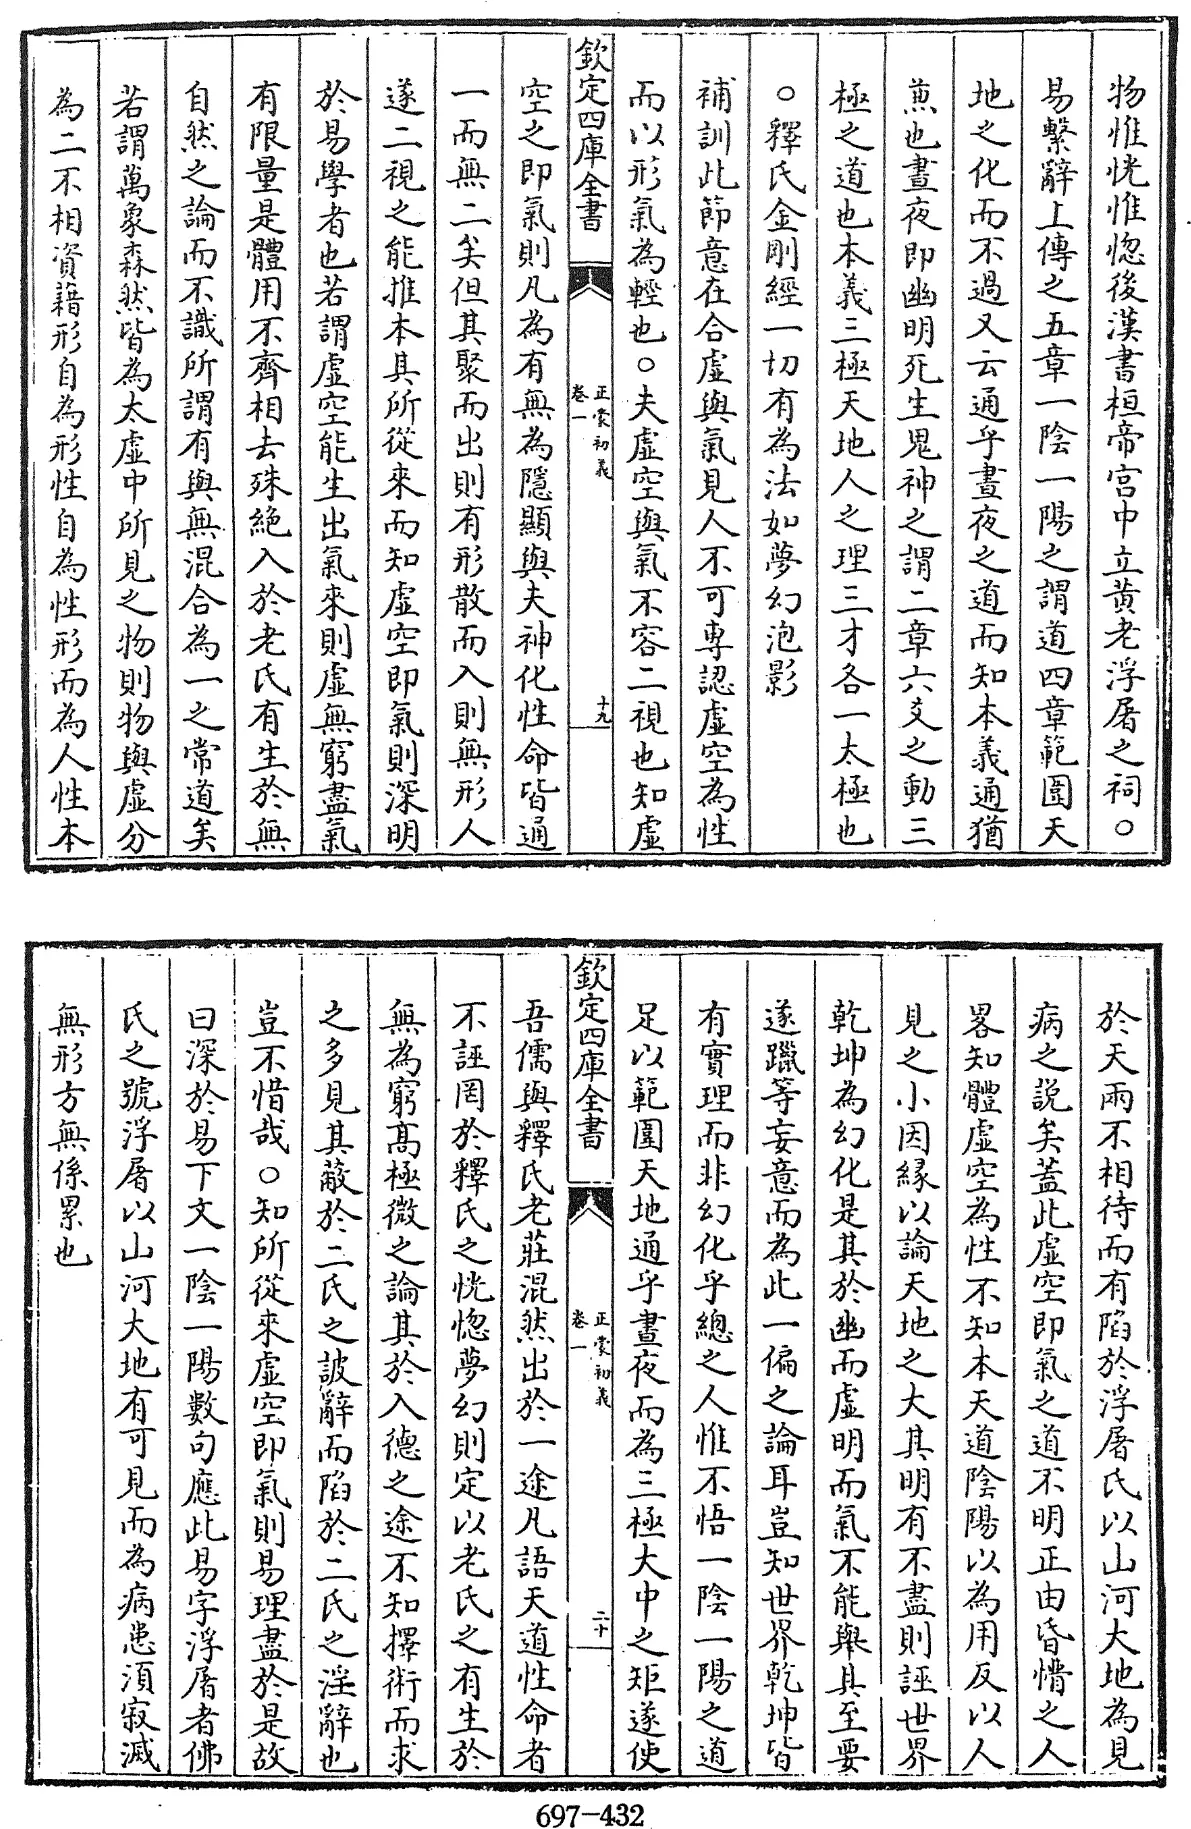 物惟恍惟惚後漢書桓帝宫中立黄老浮屠之祠○
易繫辭上傳之五章一陰一陽之謂道四章範圍天
地之化而不過又云通乎晝夜之道而知本義通猶
兼也晝夜即幽明死生鬼神之謂二章六爻之動三
極之道也本義三極天地人之理三才各一太極也
○釋氏金剛經一切有為法如夢幻泡影
補訓此節意在合虚與氣見人不可專認虚空為性
而以形氣為輕也○夫虚空與氣不容二視也知虚
欽定四庫全書
正蒙初義
卷一
十九
空之即氣則凡為有無為隱顯與夫神化性命皆通
一而無二矣但其聚而出則有形散而入則無形人
遂二視之能推本其所從來而知虚空即氣則深明
於易學者也若謂虚空能生出氣來則虚無窮盡氣
有限量是體用不齊相去殊絶入於老氏有生於無
自然之論而不識所謂有與無混合為一之常道矣
若謂萬象森然皆為太虚中所見之物則物與虚分
為二不相資藉形自為形性自為性形而為人性本
於天兩不相待而有陷於浮屠氏以山河大地為見
病之説矣蓋此虚空即氣之道不明正由昏懵之人
畧知體虚空為性不知本天道陰陽以為用反以人
見之小因緣以論天地之大其明有不盡則誣世界
乾坤為幻化是其於幽而虚明而氣不能舉其至要
遂躐等妄意而為此一偏之論耳豈知世界乾坤皆
有實理而非幻化乎總之人惟不悟一陰一陽之道
足以範圍天地通乎晝夜而為三極大中之矩遂使
欽定四庫全書
正蒙初義
卷一
二十
吾儒與釋氏老莊混然出於一途凡語天道性命者
不誣罔於釋氏之恍惚夢幻則定以老氏之有生於
無為窮髙極微之論其於入德之途不知擇術而求
之多見其蔽於二氏之詖辭而陷於二氏之淫辭也
豈不惜哉○知所從來虚空即氣則易理盡於是故
曰深於易下文一陰一陽數句應此易字浮屠者佛
氏之號浮屠以山河大地有可見而為病患須寂滅
無形方無係累也
697-432